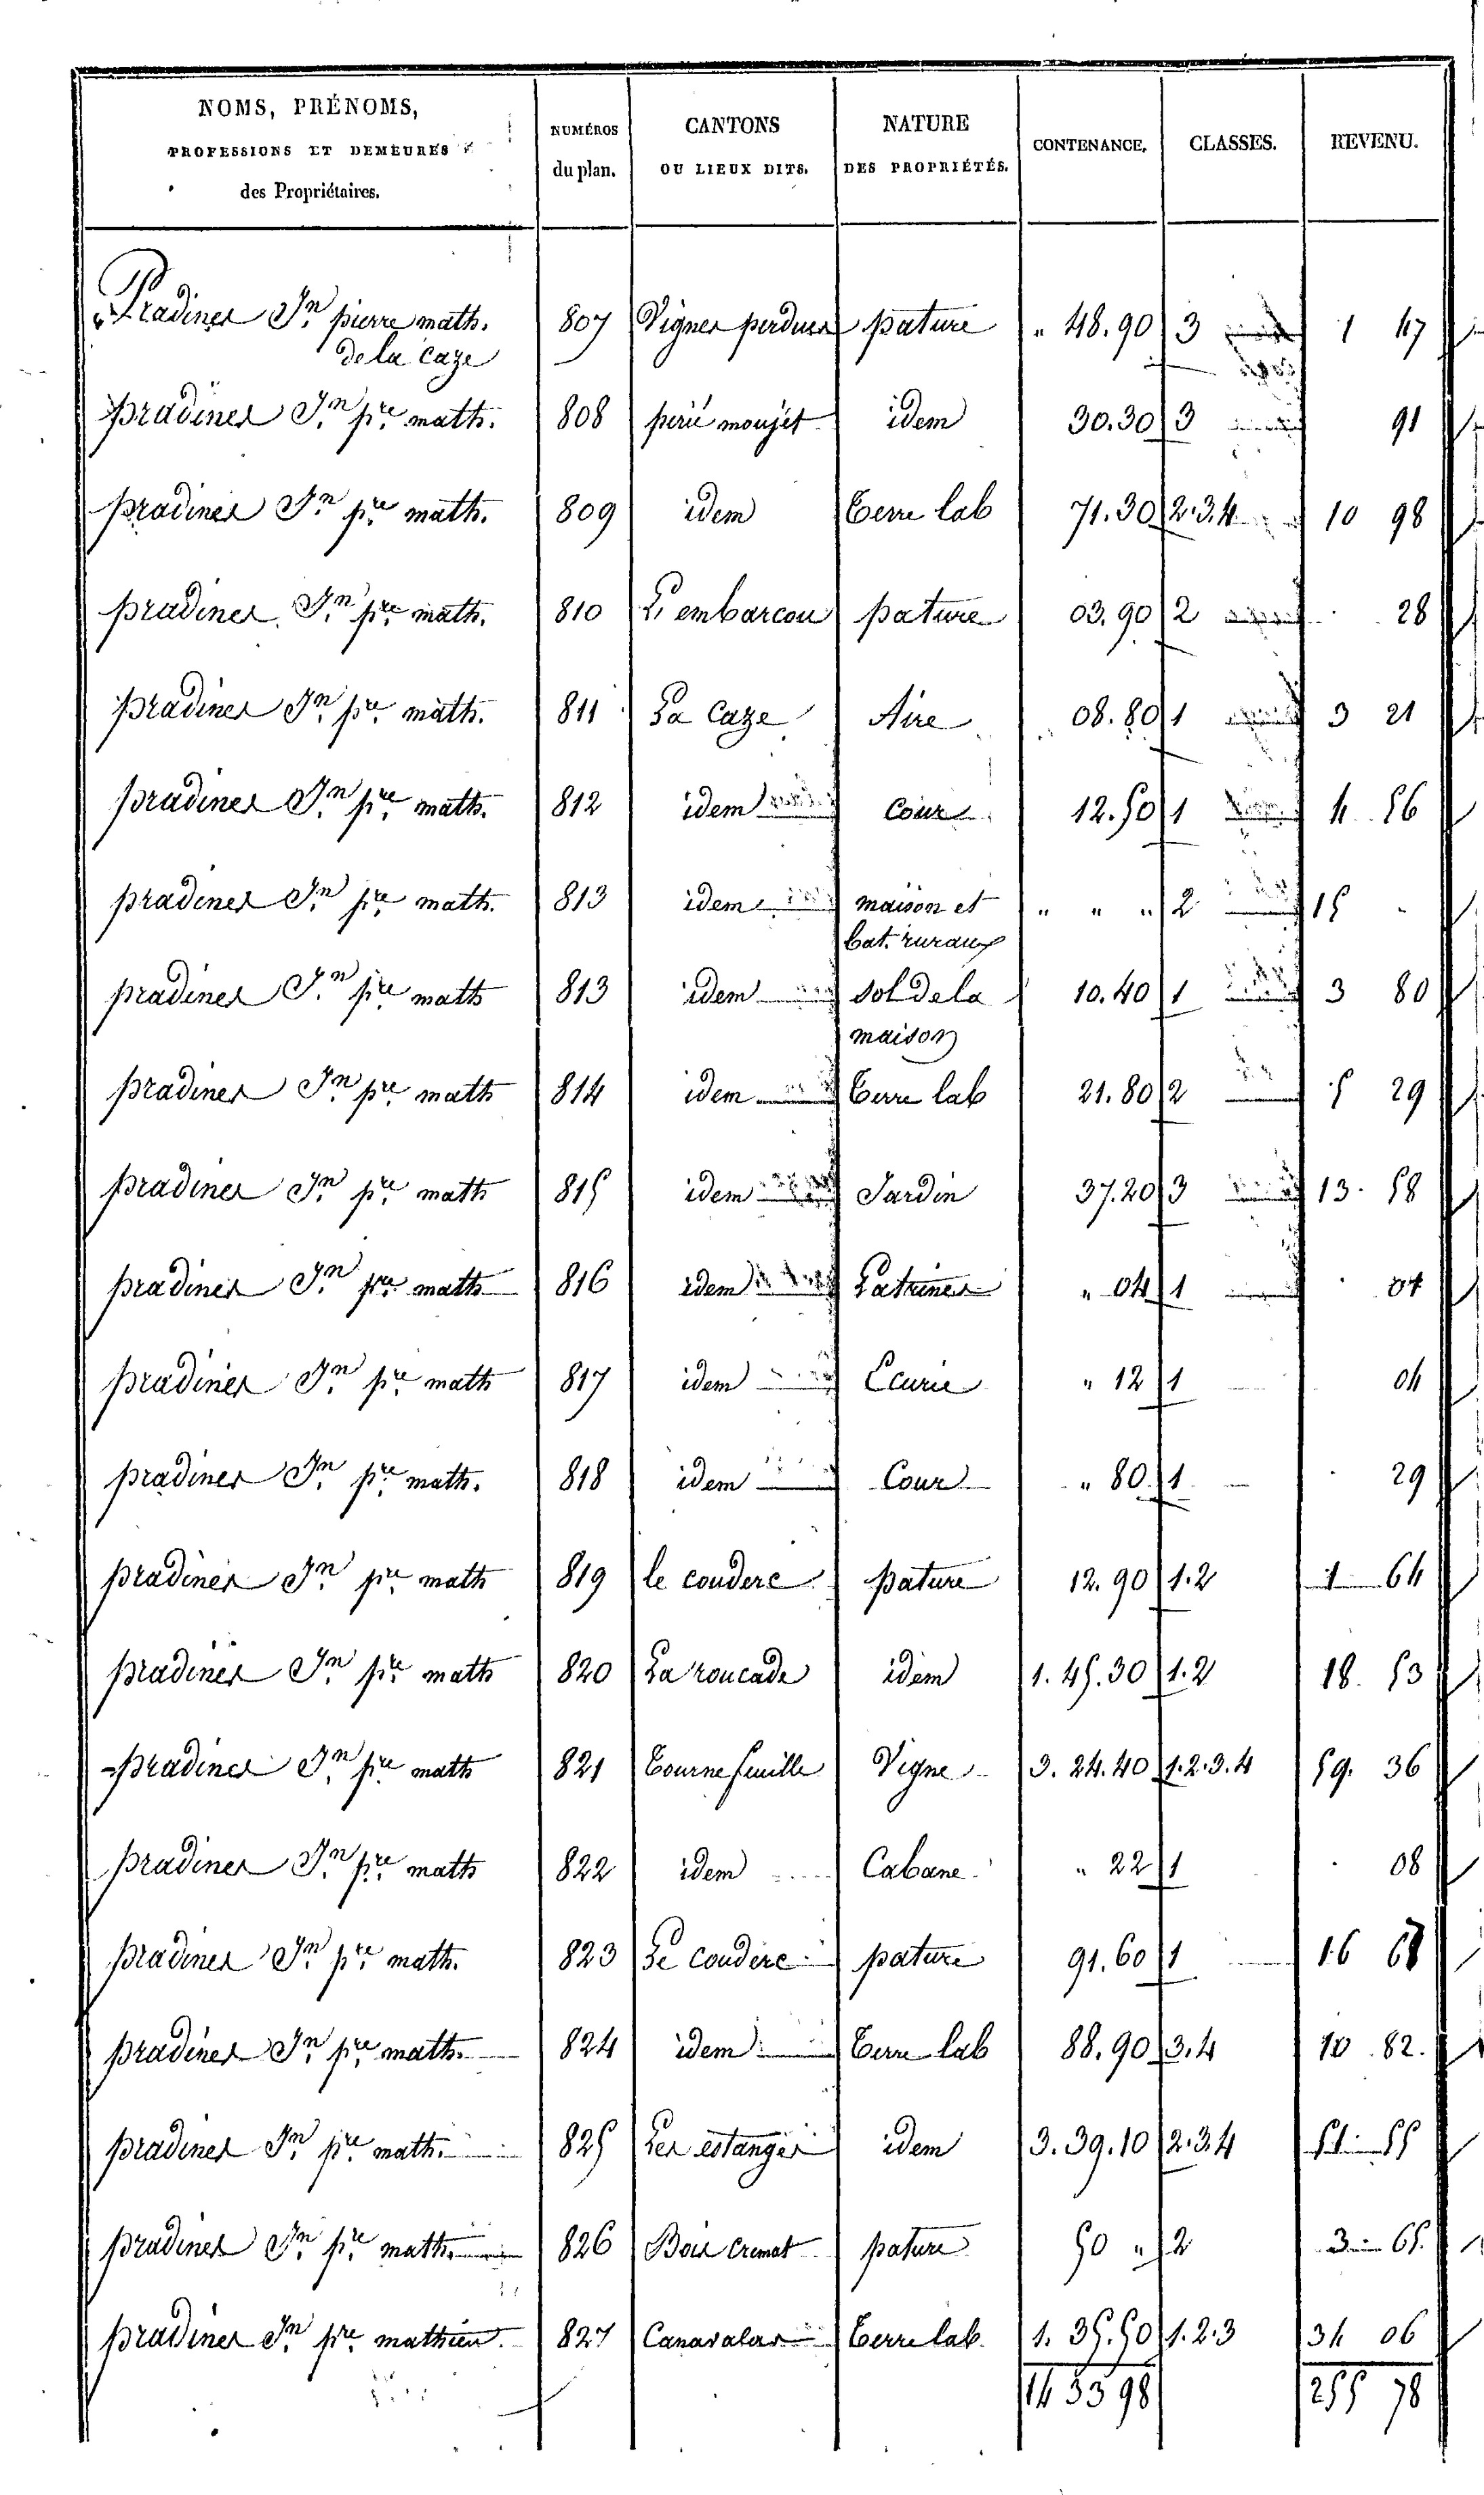 NOMS, PRÉNOMS, PROFESSIONS ET DEMEURES des Propriétaires. NUMÉROS du plan. CANTONS OU LIEUX DITS. NATURE DES PROPRIÉTÉS. CONTENANCE. CLASSES. REVENU.
Pradines Jn pierre math. 807 Vignes perdues pature " 48.90 3 1 47
de la Caze
pradines Jn pre math. 808 perié moujet idem 30.30 3 91
pradines Jn pre math. 809 idem Terre lab 71.30 2.3.4 10 98
pradines Jn pre math. 810 L'embarcou pature 03.90 2 28
pradines Jn pre math. 811 La Caze Aire 08.80 1 3 21
pradines Jn pre math. 812 idem Cour 12.50 1 4 56
pradines Jn pre math. 813 idem maison et " " " 2 15
bat. ruraux
pradines Jn pre math 813 idem sol de la 10.40 1 3 80
maison
pradines Jn pre math 814 idem Terre lab 21.80 2 5 29
pradines Jn pre math 815 idem Jardin 37.20 3 13 58
pradines Jn pre math 816 idem Latrines " 04 1 01
pradines Jn pre math 817 idem Ecurie " 12 1 04
pradines Jn pre math. 818 idem Cour " 80 1 29
pradines Jn pre math 819 le couderc pature 12.90 1.2 1 64
pradines Jn pre math 820 La roucade idem 1.45.30 1.2 18. 53
pradines Jn pre math 821 Tournefeuille Vigne 3.24.40 1.2.3.4 59. 36
pradines Jn pre math 822 idem Cabane " 22 1 08
pradines Jn pre math. 823 Le couderc pature 91.60 1 16 67
pradines Jn pre math. 824 idem Terre lab 88.90 3.4 10 82.
pradines Jn pre math. 825 Les estanges idem 3.39.10 2.3.4 51 55
pradines Jn pre math. 826 Bois cremat pature 50 " 2 3 65.
pradines Jn pre mathieu. 827 Canavalas Terre lab. 1.35.50 1.2.3 34 06
14 33 98 255 78